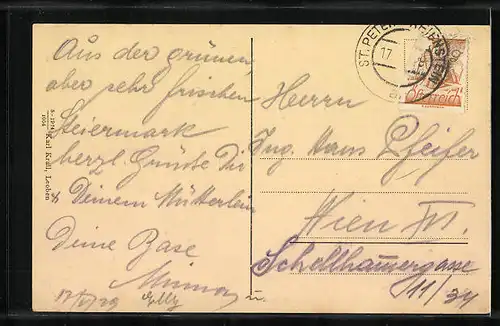 Aus der grünen,
aber sehr frischen
Steiermark
herzl. Grüsse Dir
& Deinem Mütterlein
Deine Base
17/V/29
u.
Karl Krall, Leoben
ST. PETER-FREIENSTEIN
17
Österreich
Herrn
Ing. Hans Pfeifer
Wien III.
Schellhammergasse
11/34